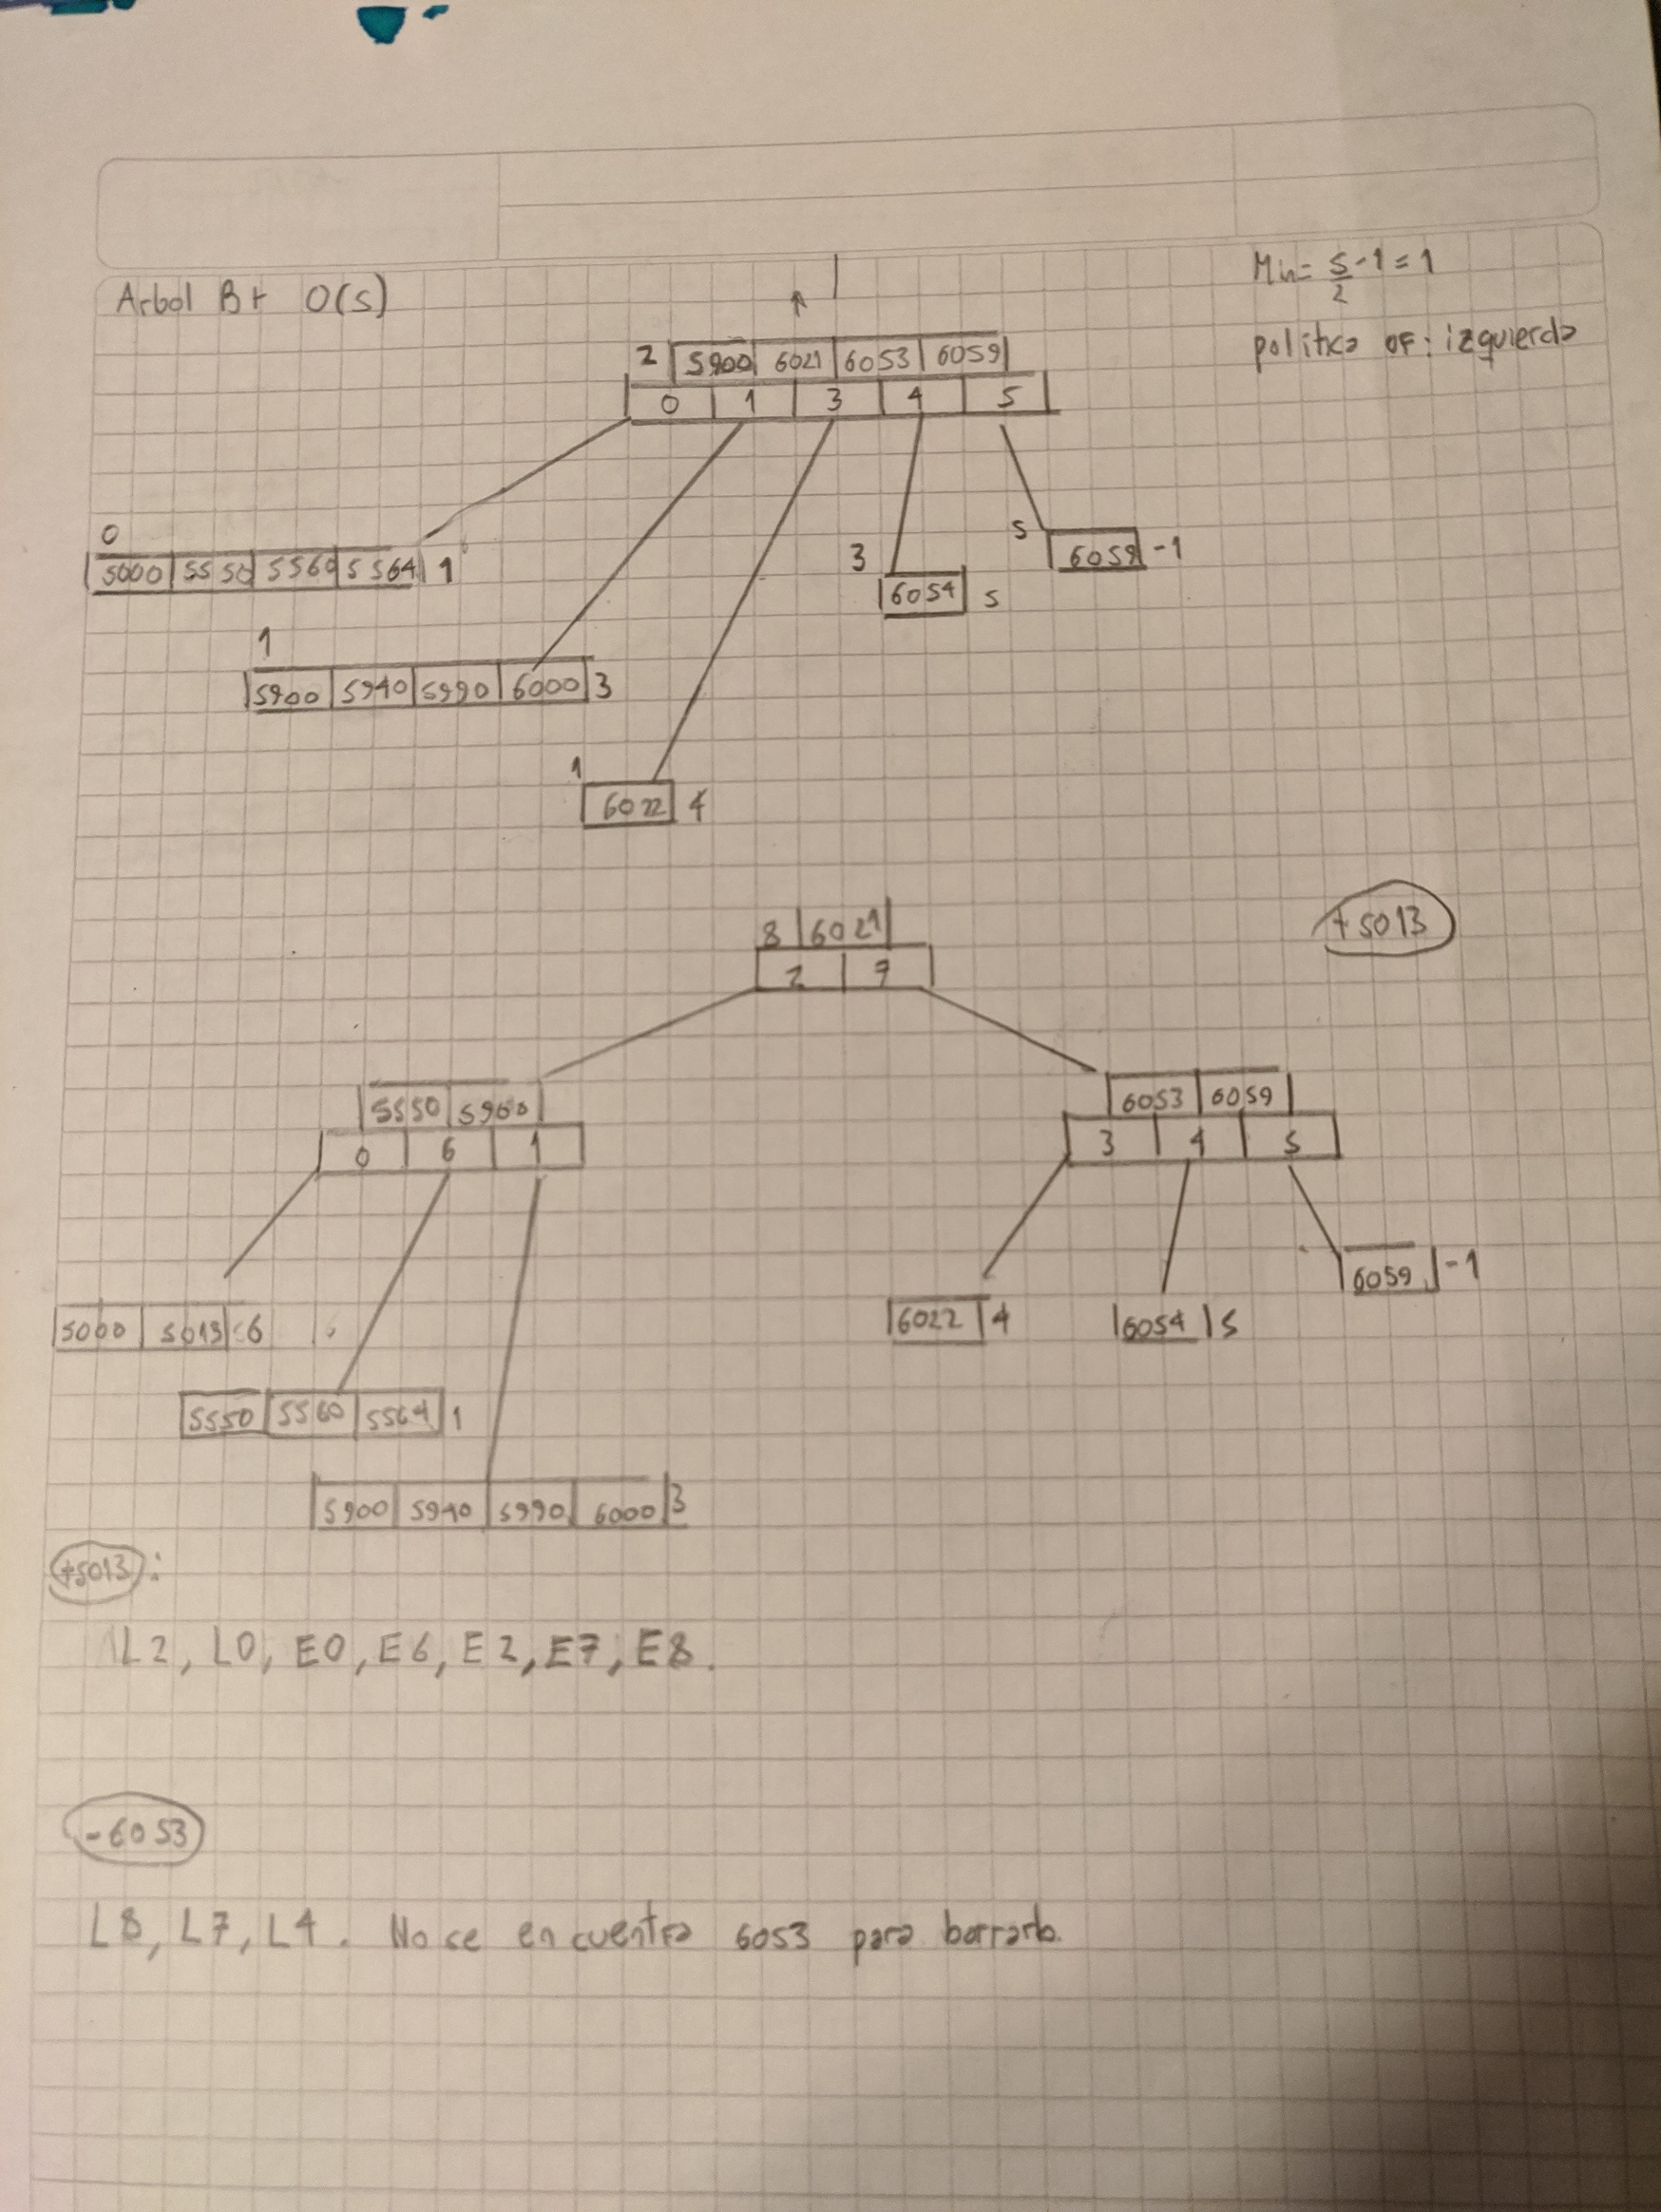 Arbol B+ O(5)
Min = 5/2 - 1 = 1
politica OF: izquierda
2 | 5900 | 6021 | 6053 | 6059 |
| 0 | 1 | 3 | 4 | 5 |
0
| 5000 | 5550 | 5560 | 5564 | 1
1
| 5900 | 5940 | 5990 | 6000 | 3
1
| 6022 | 4
3
| 6054 | 5
5
| 6059 | -1
+5013
8 | 6021 |
| 2 | 7 |
| 5550 | 5900 |
| 0 | 6 | 1 |
| 6053 | 6059 |
| 3 | 4 | 5 |
| 5000 | 5013 | 6
| 5550 | 5560 | 5564 | 1
| 5900 | 5940 | 5990 | 6000 | 3
| 6022 | 4
| 6054 | 5
| 6059 | -1
+5013 :
L2, L0, E0, E6, E2, E7, E8.
-6053
L8, L7, L4. No se encuentra 6053 para borrarlo.